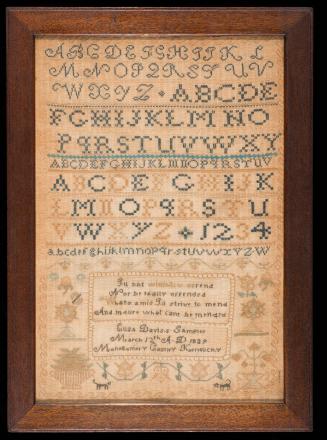 ABCDEFGHIJKL
MNOPQRSTUV
WXYZ ABCDE
FGHIJKLMNO
PQRSTUVWXY
ABCDEFGHIJKLMNOPQRSTUV
ABCDE GHIJK
LMNOPQRSTU
VWXYZ 1234
abcdefghijklmnopqrstuvwxyz W
Ill not offend
Nor be easily offended
Whats amiss Ill strive to mend
And endure what cant be mended
Eliza Daviss Sampler
March 12th A D 1829
Montgomery County Kentucky